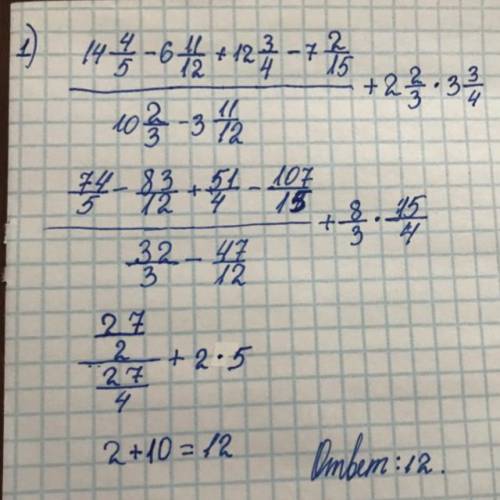 1) (14 4/5 - 6 11/12 + 12 3/4 - 7 2/15) / (10 2/3 - 3 11/12) + 2 2/3 · 3 3/4
(74/5 - 83/12 + 51/4 - 107/15) / (32/3 - 47/12) + 8/3 · 15/4
(27/2) / (27/4) + 2 · 5
2 + 10 = 12
Ответ: 12.